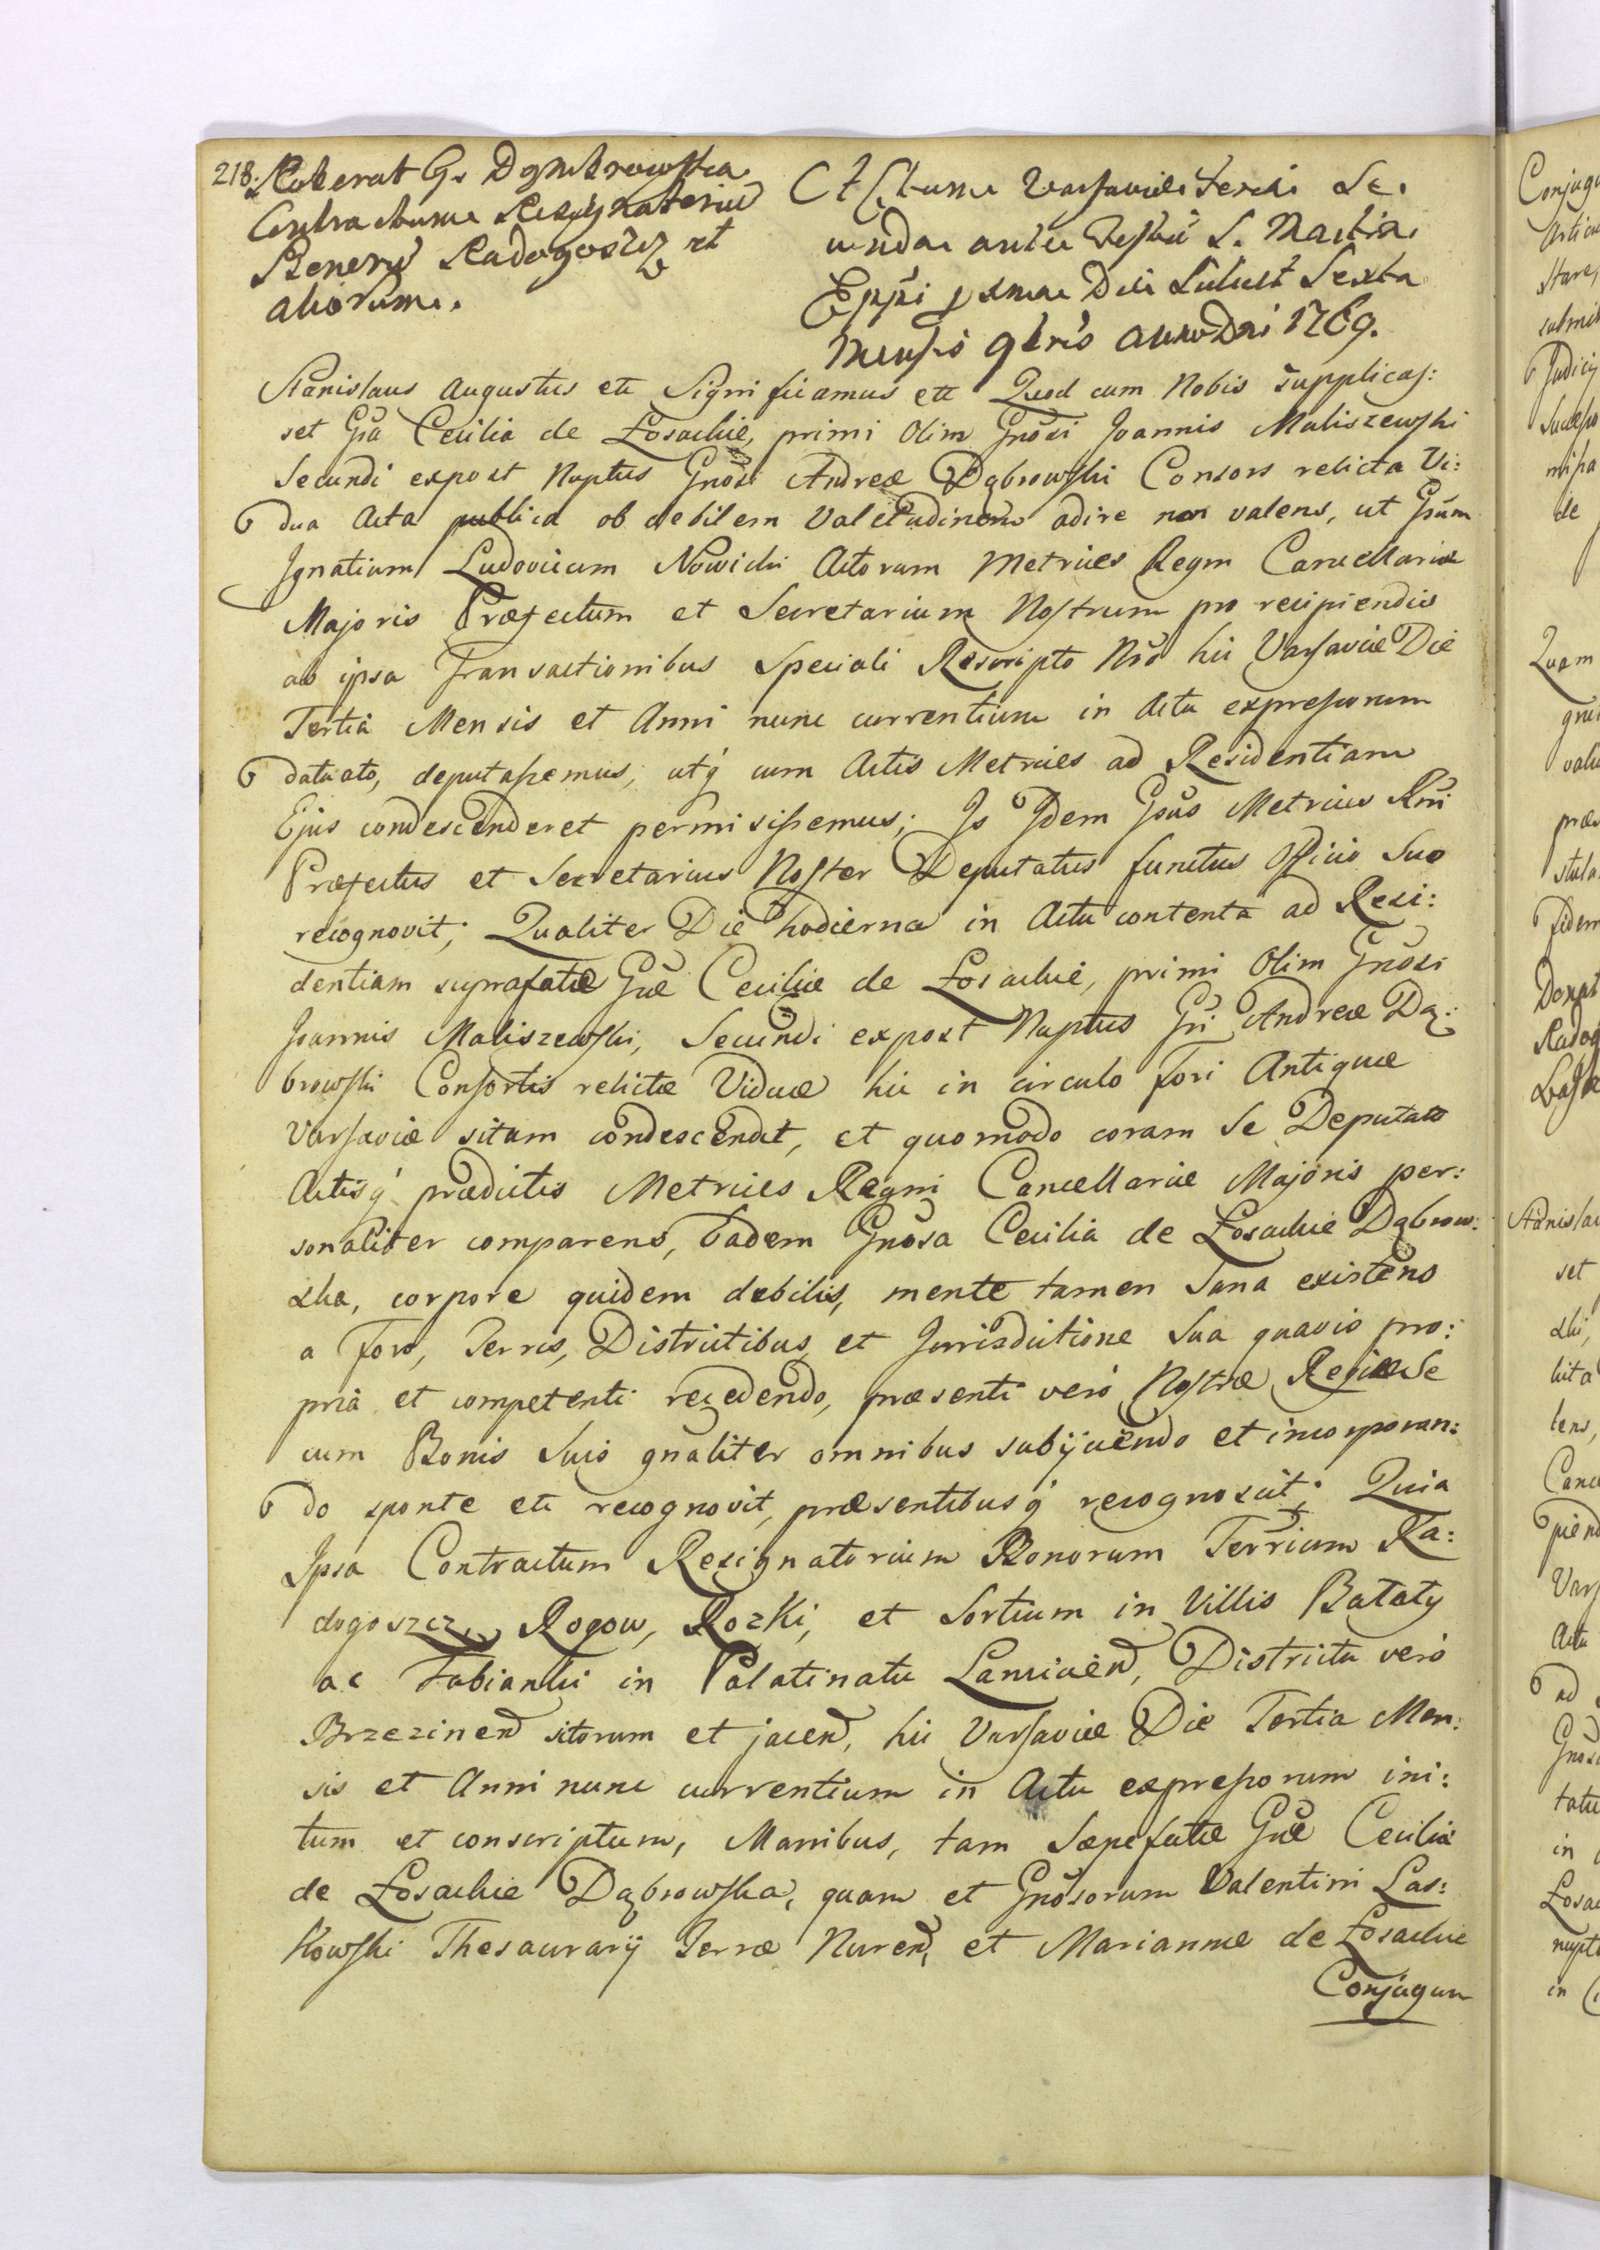 218. Roberat G. Dąmbrowska
Contractum Resignatoriũ
Bonorũ Radogoszcz et
aliorum.
Actum Varsaviæ Feria Se-
cunda ante Festũ S. Martini
Eppi pxima Die scilicet Sexta
Mensis 9bris anno Dni 1769.
Stanislaus Augustus etc Significamus etc Quod cum Nobis supplicas:
set Gsa Cecilia de Łosackie, primi Olim Gnosi Joannis Maliszewski
Secundi expost Nuptus Gnosi Andreæ Dąbrowski Consors relicta Vi:
dua Acta publica ob debilem Valetudinem adire non valens, ut Gsum
Ignatium Ludovicum Nowicki Actorum Metrices Regni Cancellariæ
Majoris Præfectum et Secretarium Nostrum pro recipiendis
ab ipsa Transactionibus Speciali Rescripto Nro hic Varsaviæ Die
Tertia Mensis et Anni nunc currentium in Actu expressorum
datato, deputassemus, utq cum Actis Metrices ad Residentiam
Ejus condescenderet permisissemus; Is Idem Gsus Metrices Rni
Præfectus et Secretarius Noster Deputatus functus Officio Suo
recognovit; Qualiter Die hodierna in Actu contenta ad Resi:
dentiam suprafatæ Gnæ Ceciliæ de Łosackie, primi Olim Gnosi
Joannis Maliszewski, Secundi expost Nuptus Gni Andreæ Dą:
browski Consortis relictæ Viduæ hic in circulo fori Antiquæ
Varsaviæ sitam condescendit, et quomodo coram se Deputato
Actisq prædictis Metrices Regni Cancellariæ Majoris per:
sonaliter comparens, Eadem Gnosa Cecilia de Łosackie Dąbrow:
ska, corpore quidem debilis, mente tamen Sana existens
a Foro, Terris, Districtibus, et Jurisdictione Sua quavis pro:
pria et competenti recedendo, præsenti vero Nostræ Regiæ Se
cum Bonis Suis gnaliter omnibus subijciendo et incorporan:
do sponte etc recognovit, præsentibusq recognoscit; Quia
Ipsa Contractum Resignatorium Bonorum Terrium Ra:
dogoszcz, Rogow, Rozki, et Sortium in Villis Bataty
ac Fabianki in Palatinatu Lancicień, Districtu vero
Brzezineń sitorum et jaceń, hic Varsaviæ Die Tertia Men:
sis et Anni nunc currentium in Actu expressorum ini:
tum et conscriptum, Manibus, tam Sæpefatæ Gnæ Ceciliæ
de Łosackie Dąbrowska, quam et Gnosorum Valentini Las:
kowski Thesaurarij Terræ Nureń, et Mariannæ de Łosackie
Conjugum